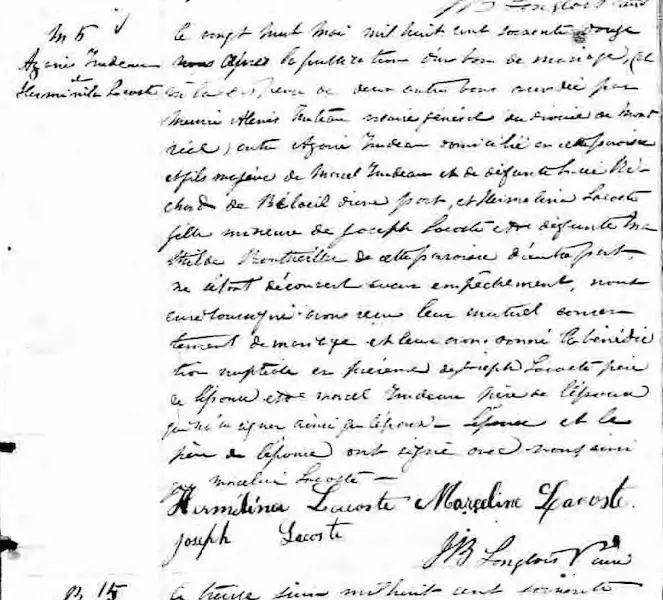 JB Longlois Ptre
M 5
Azarie Trudeau
et
Herminile Lacoste
Le vingt huit mai mil huit cent soixante douze
nous après la publication d'un ban de mariage, (et
de deux autres bans accordée par
Alexis Truteau vicaire général du diocèse de Mont
réal) entre Azarie Trudeau domicilié en cette paroisse
et fils majeur de Marcel Trudeau et de défunte Lucie Ri-
chard de Bélœil d'une part, et Herméline Lacoste
fille mineure de Joseph Lacoste et de défunte Ma
thilde de cette paroisse d'autre part,
ne s'étant découvert aucun empêchement, nous
curé soussigné avons reçu leur mutuel consen
tement de mariage et leur avons donné la bénédic
tion nuptiale en présence de Joseph Lacoste père
de l'épouse et de Marcel Trudeau père de l'époux
qui n'a su signer ainsi que l'époux - L'épouse et le
père de l'épouse ont signé avec nous, ainsi
que Marceline Lacoste —
Hermélina Lacoste Marceline Lacoste.
Joseph Lacoste
JB Longlois Ptre curé
B 15
Le treize juin mil huit cent soixante